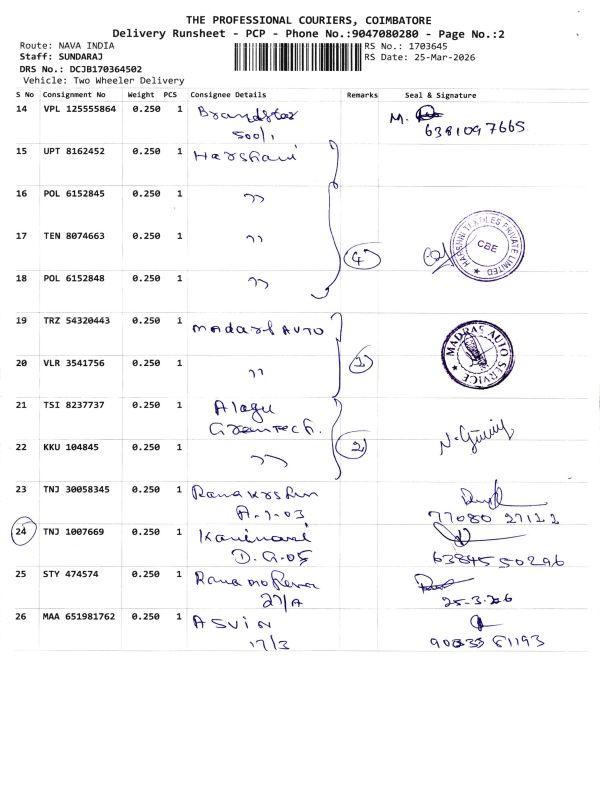 THE PROFESSIONAL COURIERS, COIMBATORE
Delivery Runsheet - PCP - Phone No.:9047080280 - Page No.:2
Route: NAVA INDIA
RS No.: 1703645
Staff: SUNDARAJ
RS Date: 25-Mar-2026
DRS No.: DCJB170364502
Vehicle: Two Wheeler Delivery
S No Consignment No Weight PCS Consignee Details Remarks Seal & Signature
14 VPL 125555864 0.250 1 Brandstar M.
500/1 6381097665
15 UPT 8162452 0.250 1 Harshani
16 POL 6152845 0.250 1 ”
17 TEN 8074663 0.250 1 ”
4 HARSHNI TEXTILES PRIVATE LIMITED CBE
18 POL 6152848 0.250 1 ”
19 TRZ 54320443 0.250 1 AUTO
MADRAS AUTO SERVICE
20 VLR 3541756 0.250 1 ”
21 TSI 8237737 0.250 1 Alagu
Greentech.
22 KKU 104845 0.250 1 ” 2
23 TNJ 30058345 0.250 1
A-7-03 77080 27122
24 TNJ 1007669 0.250 1
D.G.05 63845 50296
25 STY 474574 0.250 1
27/A
26 MAA 651981762 0.250 1 ASVIN
17/3